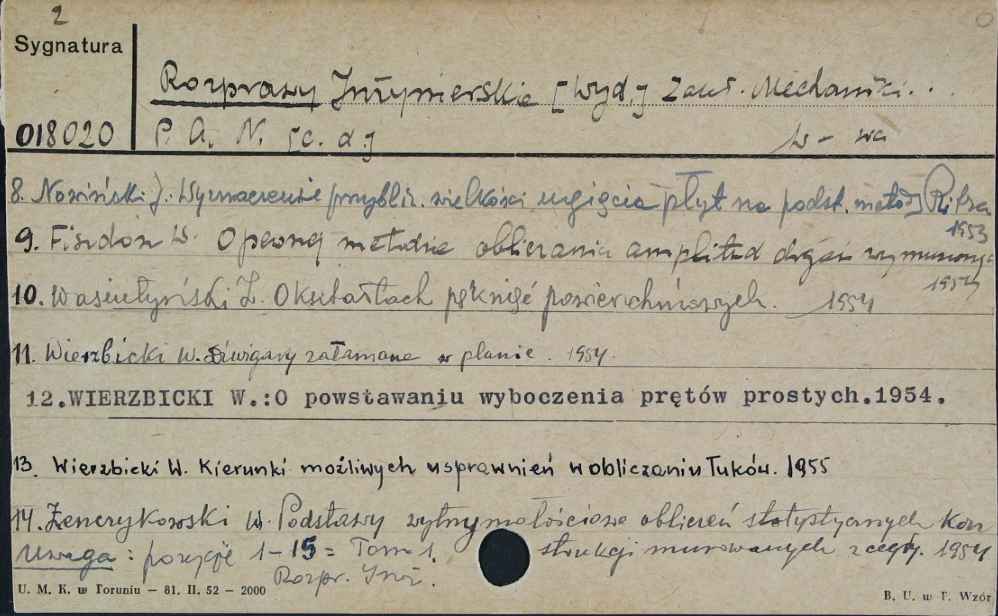 2
Sygnatura
Rozprawy Inżynierskie [Wyd.] Zakł. Mechaniki...
018020
P. A. N. [c. d.]
W - wa
8. Nowiński J. Wyznaczenie przybliż. wielkości ugięcia płyt na podst. metody Ritza
1953
9. Fiszdon W. O pewnej metodzie obliczania amplitud drgań wymuszonych
1954
10. Wasiutyński Z. O kształtach pęknięć powierzchniowych. 1954
11. Wierzbicki W. Dźwigary załamane w planie. 1954.
12.WIERZBICKI W.:O powstawaniu wyboczenia prętów prostych.1954.
13. Wierzbicki W. Kierunki możliwych usprawnień w obliczaniu łuków. 1955
14. Żenczykowski W. Podstawy wytrzymałościowe obliczeń statystycznych kon
strukcji murowanych z cegły. 1954
Uwaga: pozycje 1-15 = Tom 1.
Rozpr. Inż.
U. M. K. w Toruniu — 81. II. 52 — 2000
B. U. w T. Wzór